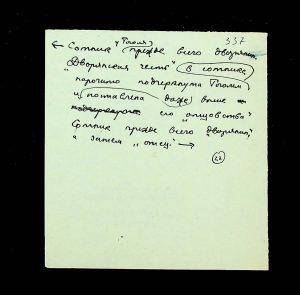 337
у Гоголя
← Сотник прежде всего дворянин.
„Дворянская честь“ в сотнике
нарочито подчеркнута Гоголем
и поставлена даже выше
его „отцовства“
Сотник прежде всего „дворянин“,
а затем „отец“. →